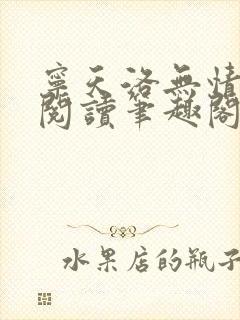 寧天洛無情
閱讀筆趣閣
水果店的瓶子